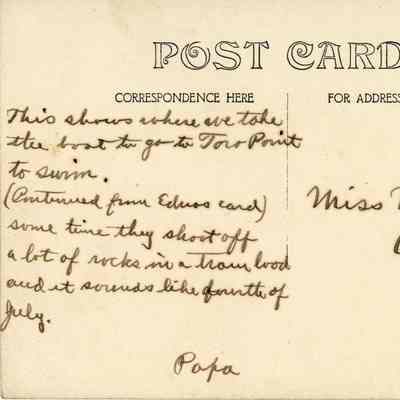 POST CARD
CORRESPONDENCE HERE
FOR ADDRESS
This shows where we take
the boat to go to Toro Point
to swim.
(Continued from Ednas card)
some time they shoot off
a lot of rocks in a train load
and it sounds like fourth of
July.
Papa
Miss